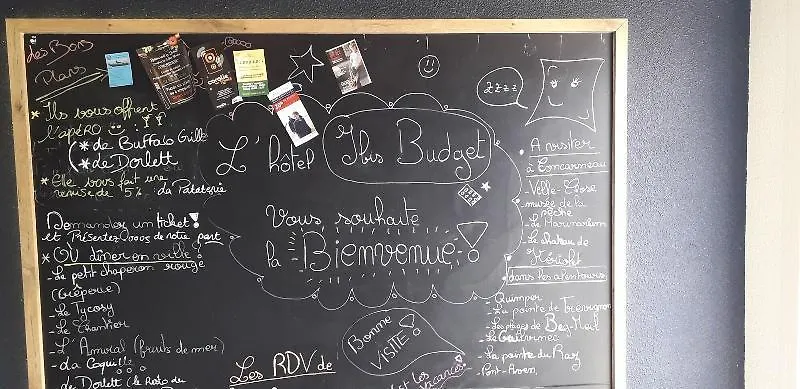 des Bons
Plans
* Ils vous offrent
l'apéro :
(* de Buffalo Grill
* de Dorlett
* Elle vous fait une
remise de 5% : la Pataterie
Demander un ticket !
et Présentez-vous de notre part
* Où dîner en ville ?
- Le petit chaperon rouge
(crêperie)
- Le Tycosy
- Le Chantier
- L'Amiral (fruits de mer)
- La Coquille
- de Dorlett (le Resto du
L'hôtel Ibis Budget
Vous souhaite
la Bienvenue !
Bonne
VISITE !
Les RDV de
vacances
zzzz
• A visiter
à Concarneau
- Ville-Close
- musée de la
pêche
- Le Marinarium
- Le chateau de
Kériolet
dans les alentours
- Quimper
- La pointe de Trévignon
- Les plages de Beg-Meil
- Le Guilvinec
- La pointe du Raz
- Pont-Aven,